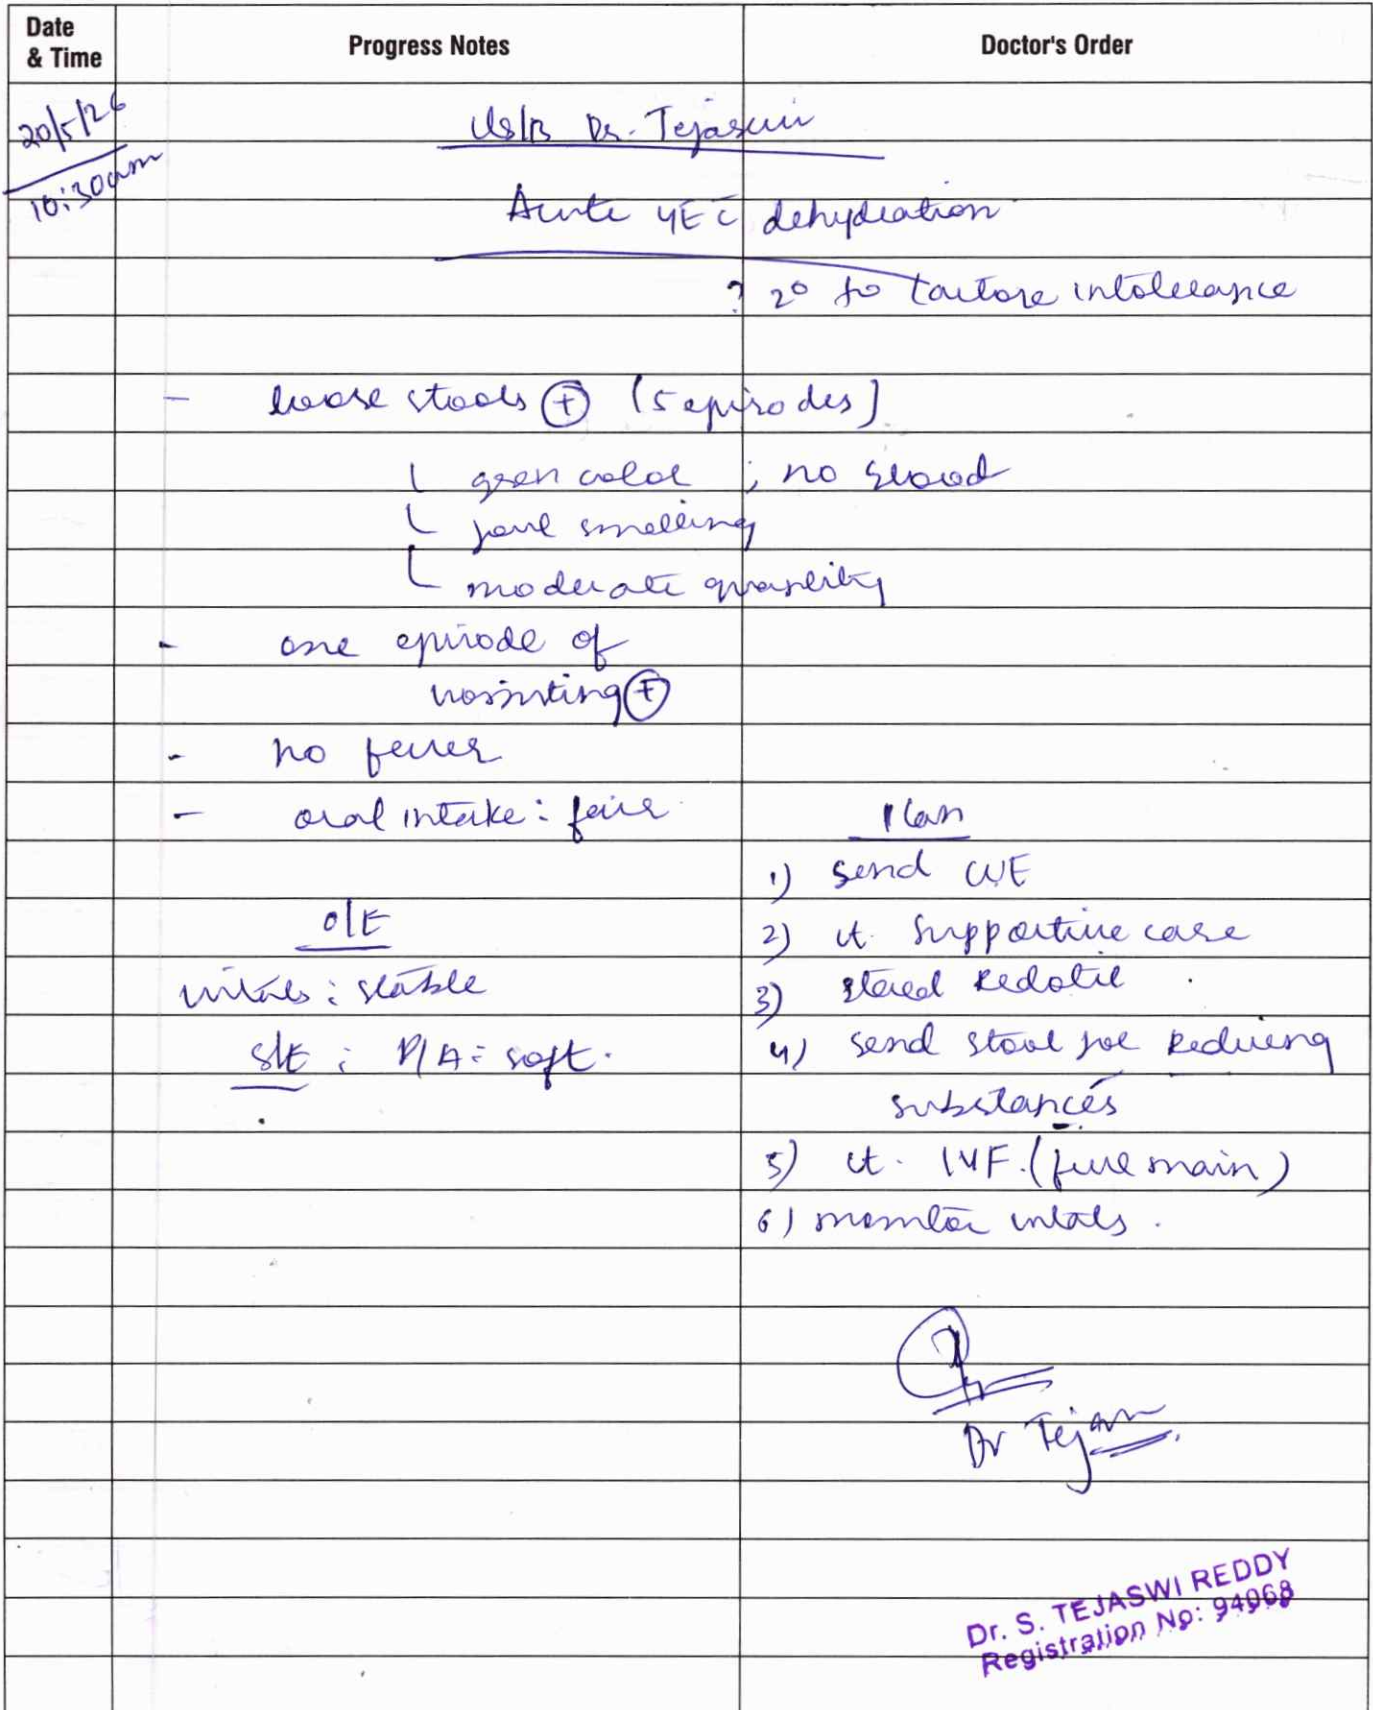 Date & Time
Progress Notes
Doctor's Order
20/5/26
10:30am
C/S/B Dr. Tejaswi
Acute GE c̄ dehydration
? 2° to lactose intolerance
- loose stools (+) (5 episodes)
green color ; no blood
foul smelling
moderate quantity
- one episode of
vomiting (+)
- no fever
- oral intake : fair
Plan
1) Send CUE
O/E
2) ct. Supportive care
vitals : stable
3) started Redotil
S/E : P/A : soft.
4) send stool for Reducing
substances
5) ct. IVF. (full main)
6) monitor vitals.
Dr Tejaswi
Dr. S. TEJASWI REDDY
Registration No: 94068